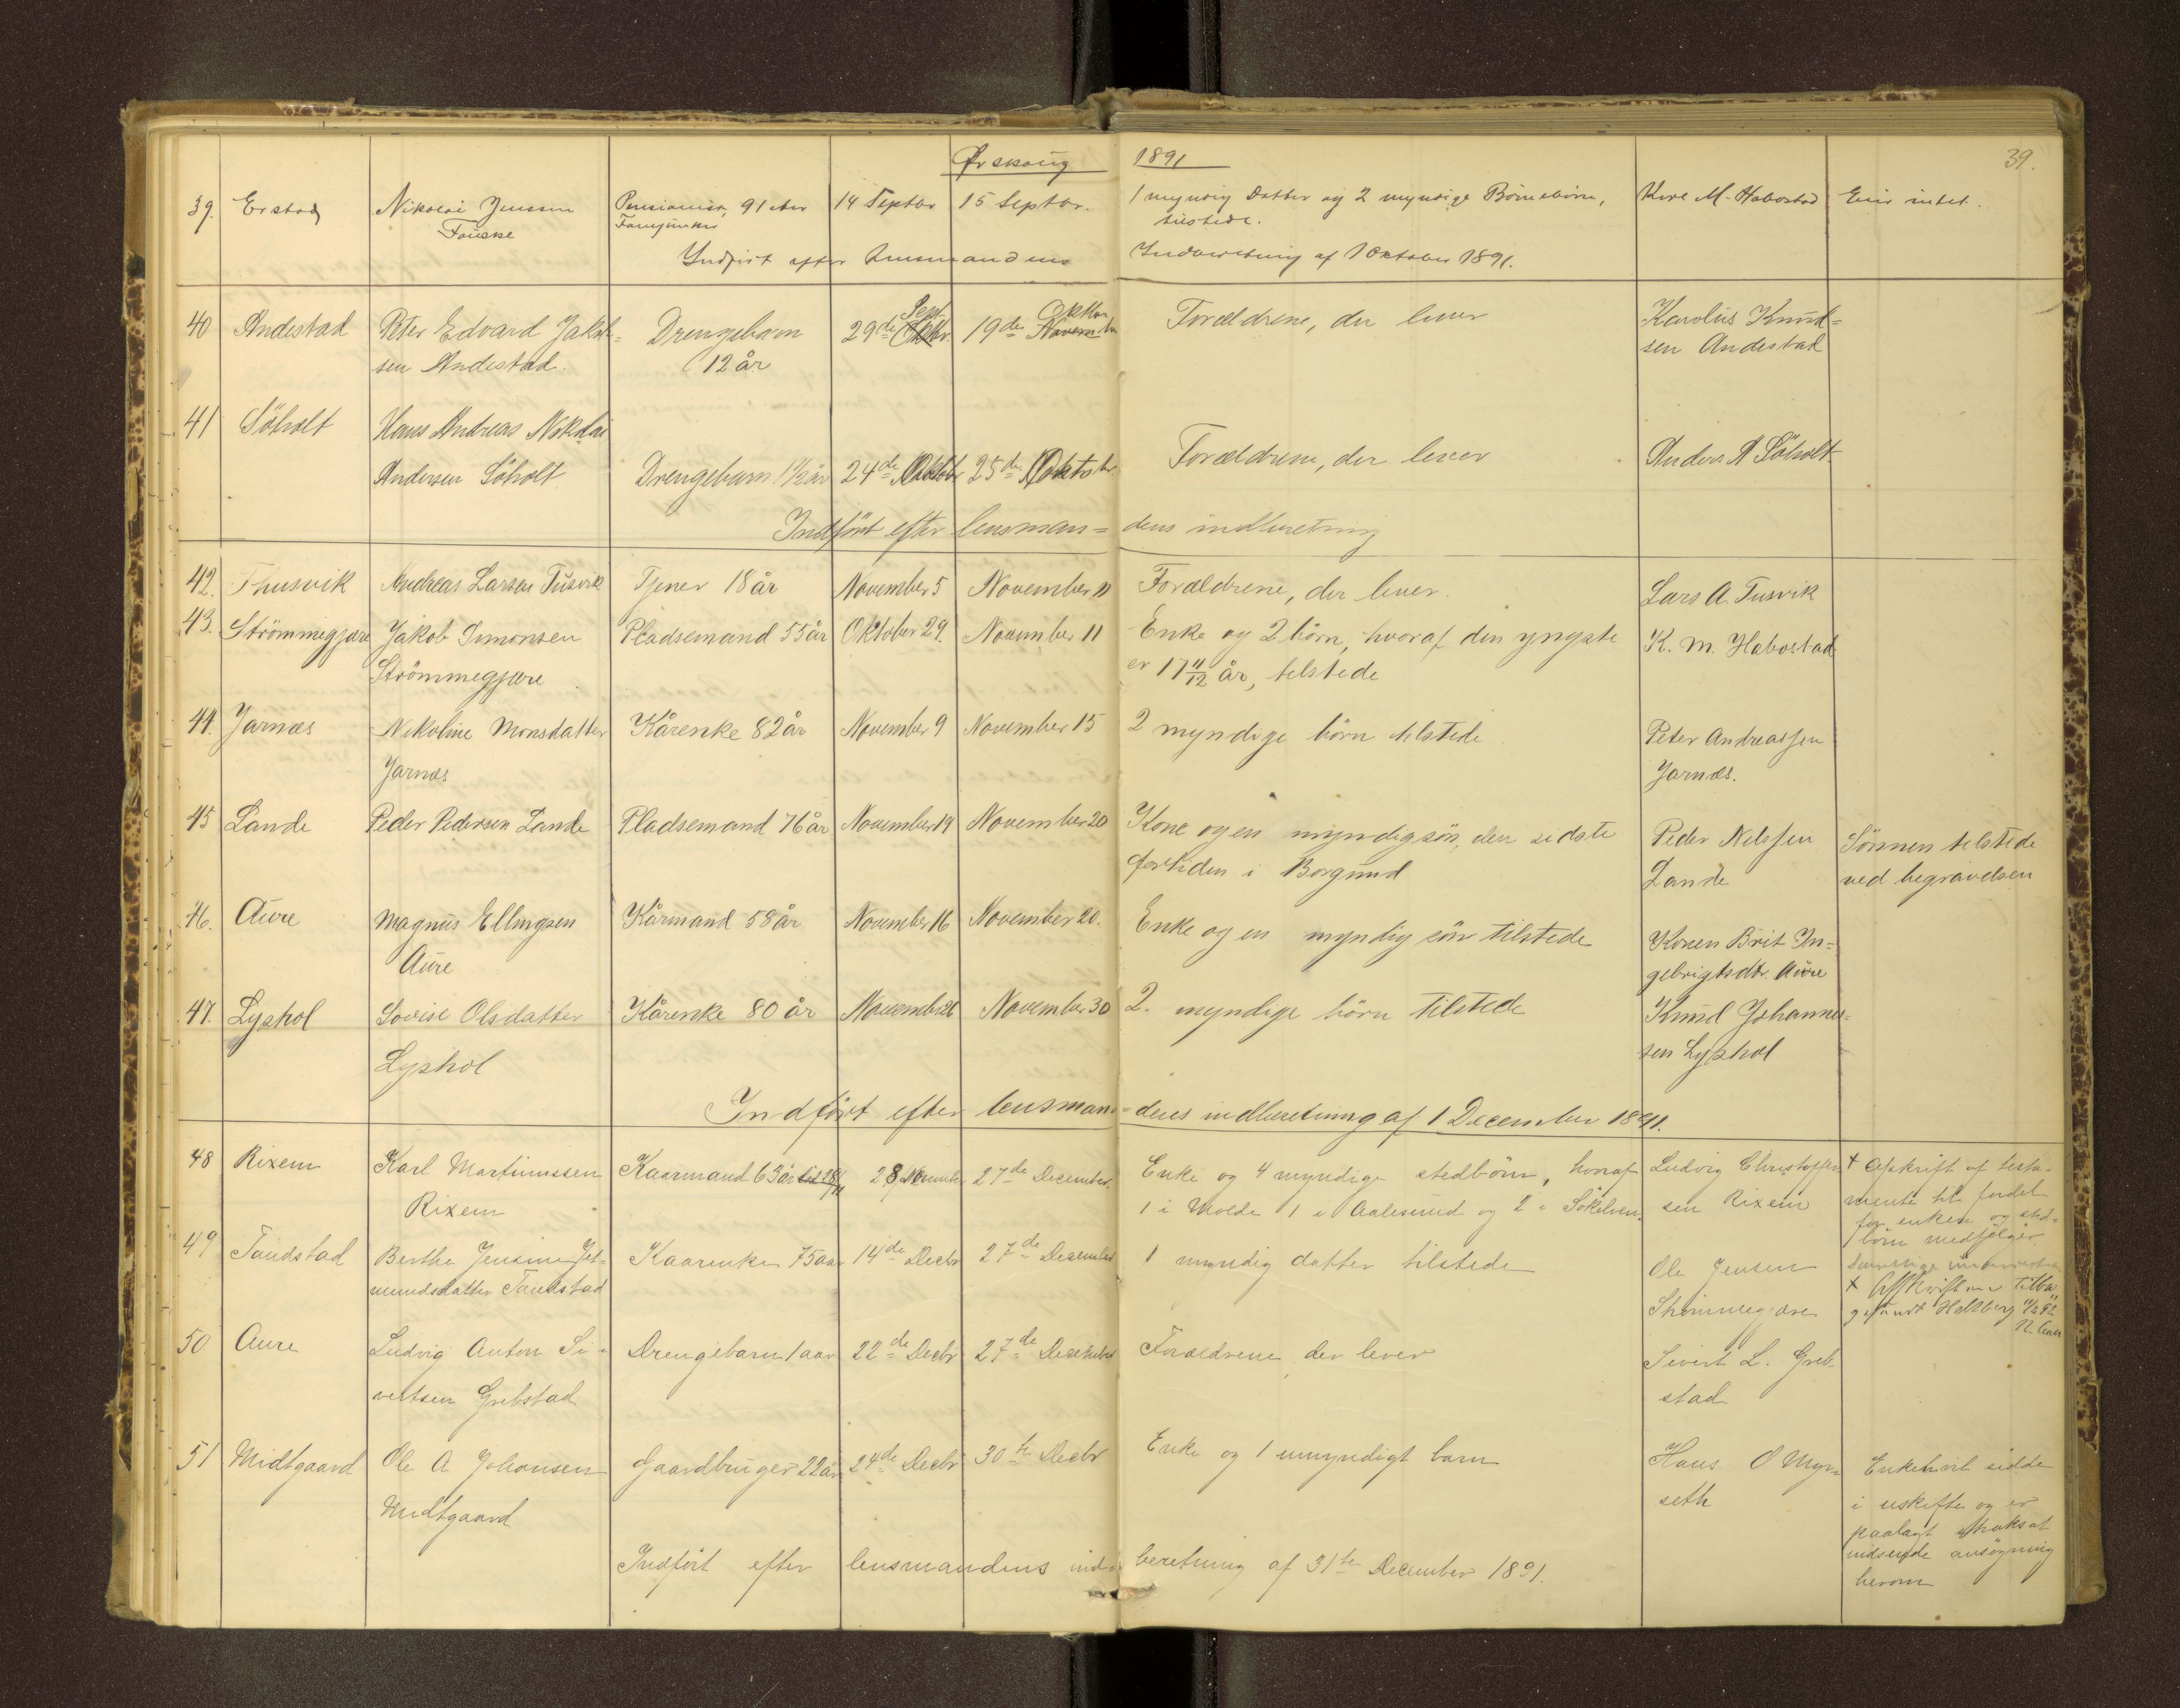 Ørskoug 1891
39.
39. Erstad Nikolai Jenssen Pensioneret, 91 aar 14 Septbr 15 Septbr. 1 myndig Datter og 2 myndige Børnebørn, Karl M. Habostad Eier intet.
Fauske Fanejunker tilstede.
Indført efter Lensmandens Indberetning af 1 Oktober 1891.
40 Andestad Peter Edvard Jakob= Drengebarn 29de Sept. 19de Oktbr Forældrene, der lever Karolus Knud=
sen Andestad. 12 år sen Andestad
41 Söholt Hans Andreas Nikolai
Andersen Söholt Drengebarn 1½ år 24de Oktobr 25de Oktobr. Forældrene, der lever Anders A Söholt
Indfört efter lensman= dens indberetning
42. Thusvik Andreas Larsen Tusvik Tjener 18 år November 5 November 11 Forældrene, der lever. Lars A. Tusvik
43. Strömmegjære Jakob Simonsen Pladsemand 55 år Oktober 29. November 11 Enke og 2 börn, hvoraf den yngste K. M. Habostad
Strömmegjære er 17 11/12 år, tilstede
44. Jarnæs Nikoline Monsdatter Kårenke 82 år November 9 November 15 2 myndige börn tilstede Peter Andreassen
Jarnæs Jarnæs.
45 Lande Peder Pedersen Lande Pladsemand 76 år November 14 November 20 Kone og en myndig sön, den sidste Peder Nelssen Sönnen tilstede
fortiden i Borgund Lande ved begravelsen
46. Aure Magnus Ellingsen Kårmand 58 år November 16 November 20. Enke og en myndig sön tilstede Konen Brit In=
Aure gebrigtsdtr. Aure
47. Lyshol Lovise Olsdatter Kårenke 80 år November 26 November 30 2. myndige börn tilstede Knud Johannes=
Lyshol sen Lyshol
Indfört efter lensman= dens indberetning af 1 December 1891.
48 Rixem Karl Martinussen Kaarmand 63 år 28 November 27de December. Enke og 4 myndige stedbörn, hvoraf Ludvig Christoffer X Afskrift af testa-
Rixem 1 i Molde 1 i Aalesund og 2 i Sökelven. sen Rixem mente til fordel
for enken og sted=
börn medfölger
49 Tandstad Berthe Jensine Jet- Kaarenke 75 aar 14de Decbr 27de Desember 1 myndig datter tilstede Ole Jensen
mundsdatter Tandstad Strömmegjære
X Afskriften tilba
gesendt
50 Aure Ludvig Anton Si- Drengebarn 1 aar 22de Decbr 27de Desember Forældrene der lever Sivert L. Greb
vertsen Grebstad stad
51 Midtgaard Ole A Johansen Gaardbruger 22 år 24de Decbr 30te Decbr Enke og 1 umyndigt barn Hans O Myr= Enken vil sidde
Midtgaard seth i uskifte og er
paalagt straks at
indsende ansögning
herom
Indfört efter lensmandens ind= beretning af 31te December 1891.